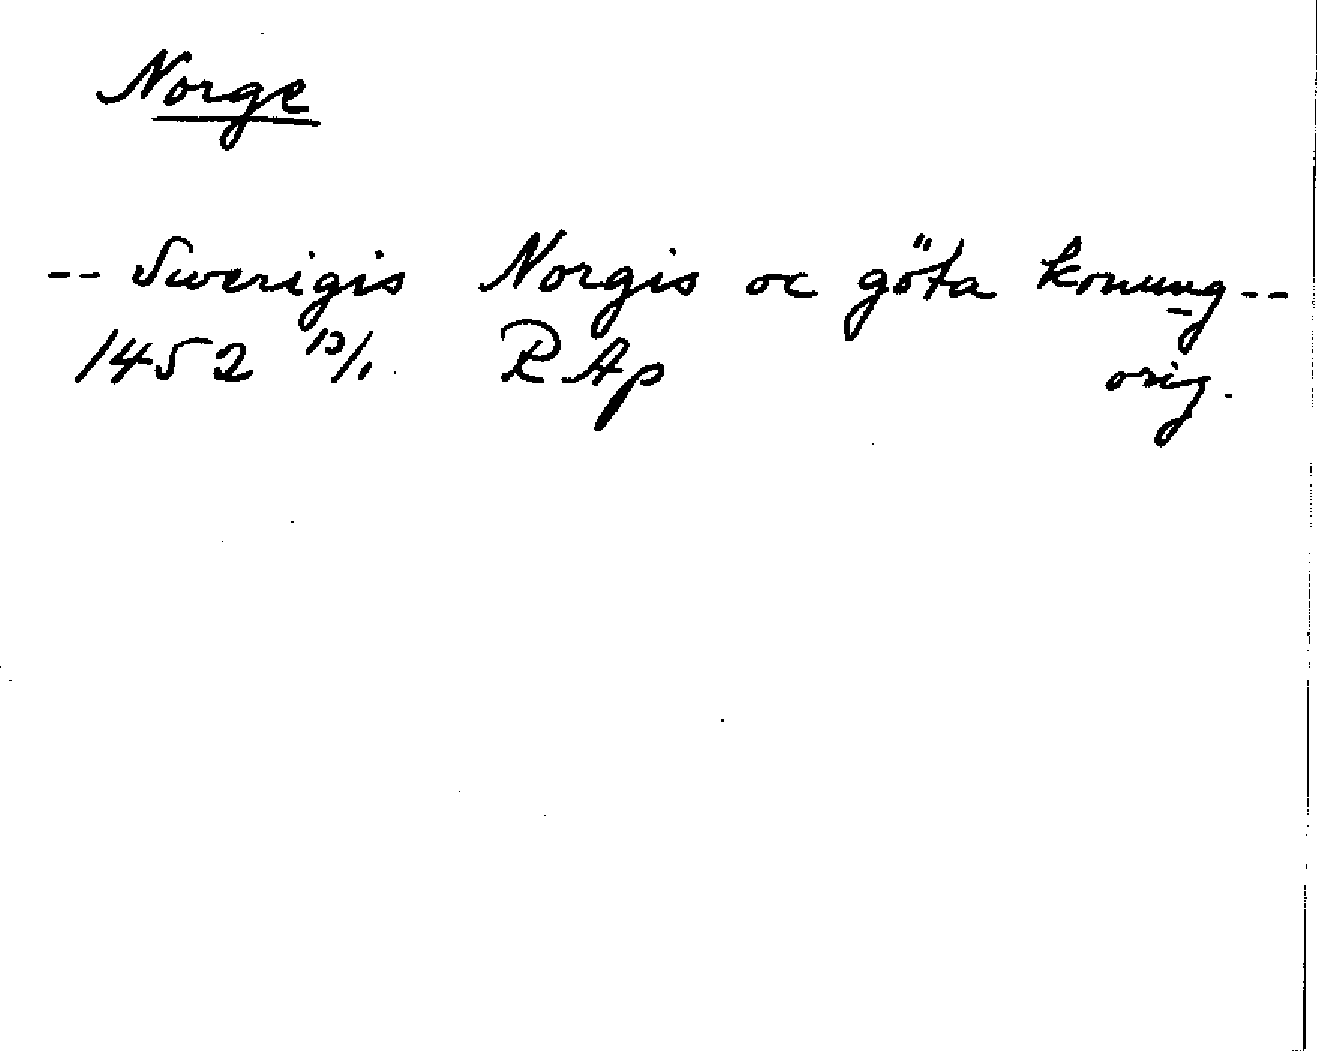 Norge
-- Swerigis Norgis oc göta konung --
1452 13/1. RAp orig.